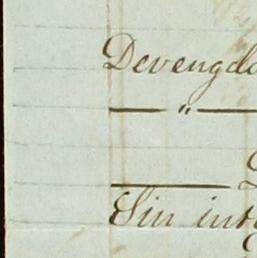 Devengdo
— " —
Sin int